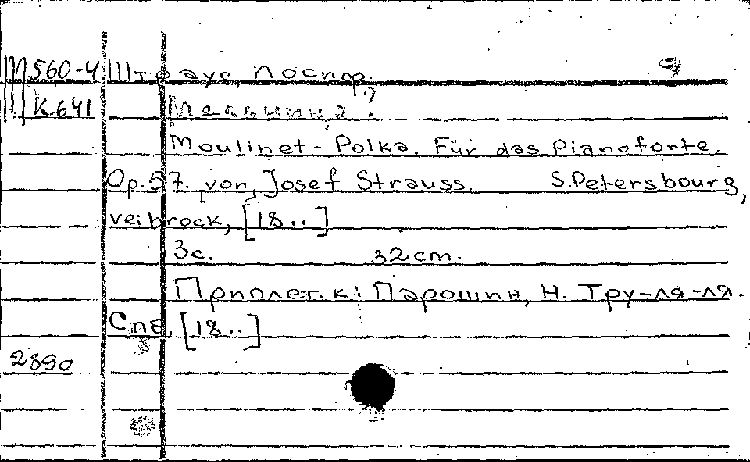 М560-4 Штраус, Иосиф.
К641 Мельница?
Moulinet-Polka. Für das Pianoforte.
Op.57. von Josef Strauss. S.Petersbourg,
veibrock, [18..]
3с. 32cm.
Приплет. к: Парошин, Н. Тру-ля-ля.
Спб, [18..]
2890